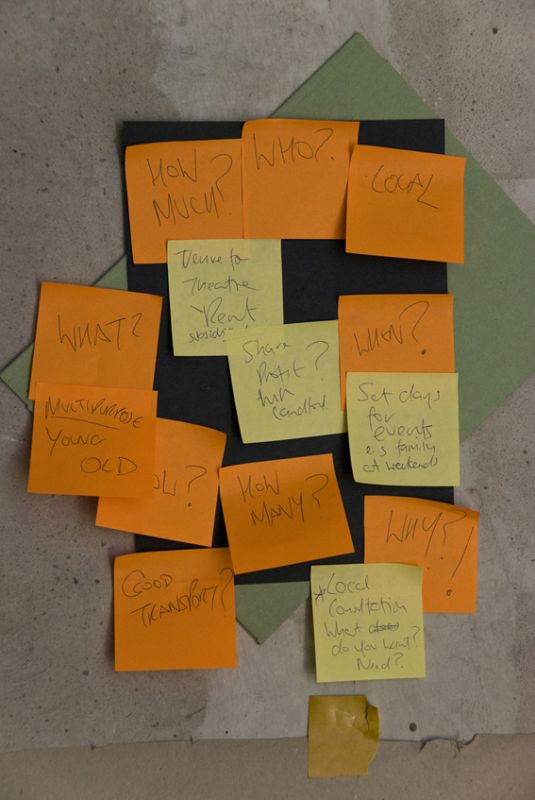 HOW
MUCH?
WHO?
LOCAL
Venue for
Theatre
Rent
WHAT?
Share
Profit?
Landlord
WHEN?
MULTIPURPOSE
YOUNG
OLD
Set days
for
events
e.g family
at weekends
HOW
MANY?
WHY?!
GOOD
TRANSPORT?
Local
Consultation
What
do you want?
Need?